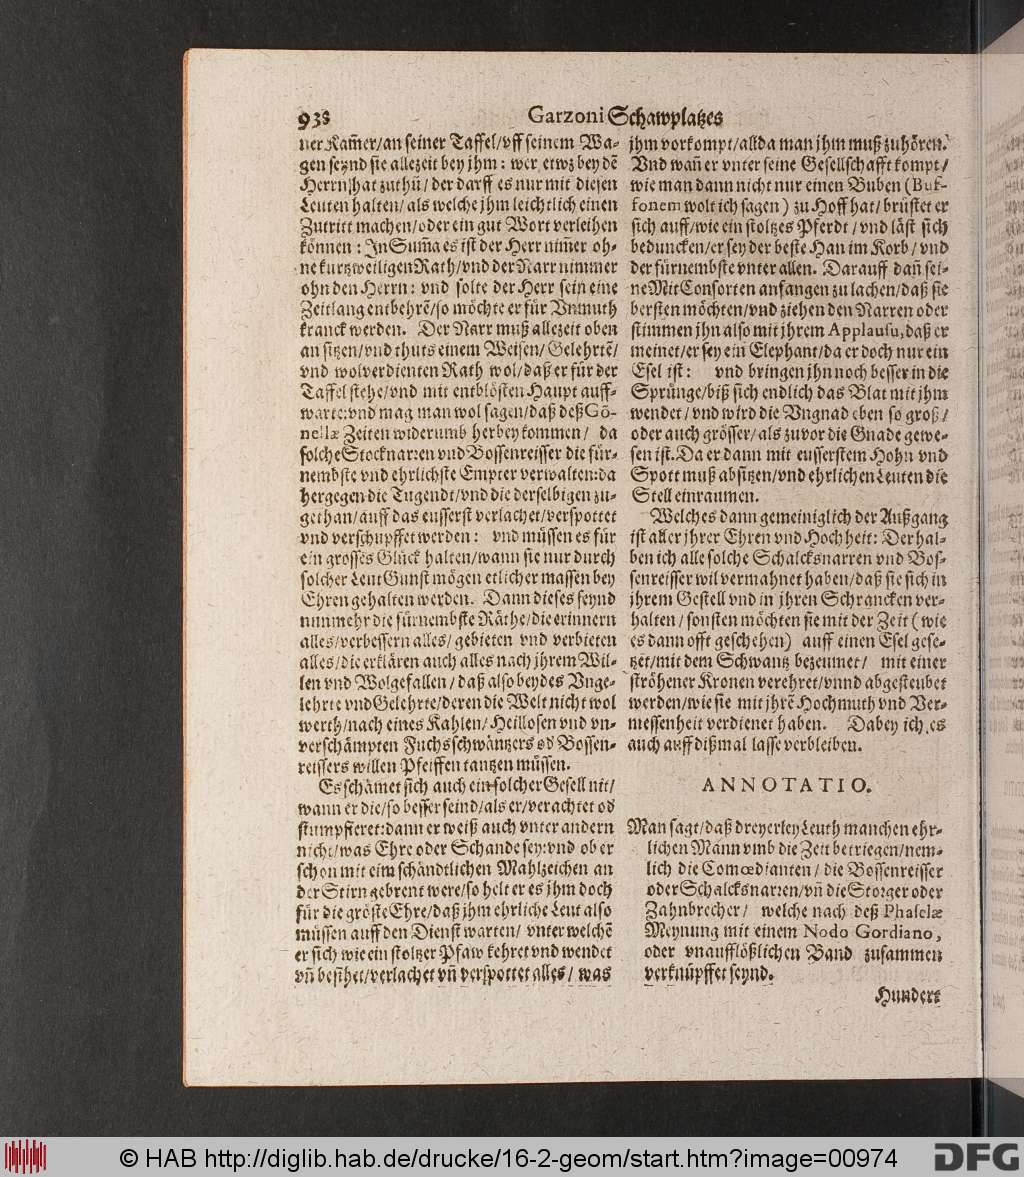 938
Garzoni Schawplatzes
ner Kam̃er/an seiner Taffel/vff seinem Wa-
gen seynd sie allezeit bey jhm: wer etwz bey dẽ
Herrn hat zuthũ/ der darff es nur mit diesen
Leuten halten/ als welche jhm leichtlich einen
Zutritt machen/oder ein gut Wort verleihen
können: In Sum̃a es ist der Herr nim̃er oh-
ne kurtzweiligen Rath/vnd der Narr nimmer
ohn den Herrn: vnd solte der Herr sein eine
Zeitlang entbehrẽ/so möchte er für Vnmuth
kranck werden. Der Narr muß allezeit oben
an sitzen/vnd thuts einem Weisen/ Gelehrtẽ/
vnd wolverdienten Rath wol/daß er für der
Taffel stehe/vnd mit entblösten Haupt auff-
warte:vnd mag man wol sagen/daß deß Gō-
nellæ Zeiten widerumb herbey kommen/ da
solche Stocknarren vnd Bossenreisser die für-
nembste vnd ehrlichste Empter verwalten:da
hergegen die Tugendt/vnd die derselbigen zu-
gethan/auff das eusserst verlachet/verspottet
vnd verschupffet werden: vnd müssen es für
ein grosses Glück halten/wann sie nur durch
solcher Leut Gunst mögen etlicher massen bey
Ehren gehalten werden. Dann dieses seynd
nunmehr die fürnembste Räthe/die erinnern
alles/verbessern alles/ gebieten vnd verbieten
alles/die erklären auch alles nach jhrem Wil-
len vnd Wolgefallen/ daß also beydes Vnge-
lehrte vnd Gelehrte/deren die Welt nicht wol
werth/nach eines Kahlen/ Heillosen vnd vn-
verschämpten Fuchsschwäntzers od̓ Bossen-
reissers willen Pfeiffen tantzen müssen.
Es schämet sich auch ein solcher Gesell nit/
wann er die/so besser seind/als er/verachtet od̓
stumpfieret:dann er weiß auch vnter andern
nicht/was Ehre oder Schande sey:vnd ob er
schon mit eim schändtlichen Mahlzeichen an
der Stirn gebrent were/so helt er es jhm doch
für die gröste Ehre/daß jhm ehrliche Leut also
müssen auff den Dienst warten/ vnter welchẽ
er sich wie ein stoltzer Pfaw kehret vnd wendet
vñ besihet/verlachet vñ verspottet alles/ was
jhm vorkompt/allda man jhm muß zuhören.
Vnd wañ er vnter seine Gesellschafft kompt/
wie man dann nicht nur einen Buben (Buf-
fonem wolt ich sagen) zu Hoff hat/ brüstet er
sich auff/wie ein stoltzes Pferdt/ vnd läst sich
beduncken/er sey der beste Han im Korb/ vnd
der fürnembste vnter allen. Darauff dañ sei-
ne Mit Consorten anfangen zu lachen/daß sie
bersten möchten/vnd ziehen den Narren oder
stimmen jhn also mit jhrem Applausu, daß er
meinet/er sey ein Elephant/da er doch nur ein
Esel ist: vnd bringen jhn noch besser in die
Sprünge/biß sich endlich das Blat mit jhm
wendet/ vnd wird die Vngnad eben so groß/
oder auch grösser/als zuvor die Gnade gewe-
sen ist. Da er dann mit eusserstem Hohn vnd
Spott muß absitzen/vnd ehrlichen Leuten die
Stell einraumen.
Welches dann gemeiniglich der Außgang
ist aller jhrer Ehren vnd Hochheit: Derhal-
ben ich alle solche Schalcksnarren vnd Bos-
senreisser wil vermahnet haben/daß sie sich in
jhrem Gestell vnd in jhren Schrancken ver-
halten/ sonsten möchten sie mit der Zeit (wie
es dann offt geschehen) auff einen Esel gese-
tzet/mit dem Schwantz bezeumet/ mit einer
ströhener Kronen verehret/vnnd abgesteubet
werden/wie sie mit jhrẽ Hochmuth vnd Ver-
messenheit verdienet haben. Dabey ich es
auch auff dißmal lasse verbleiben.
ANNOTATIO.
Man sagt/daß dreyerley Leuth manchen ehr-
lichen Mann vmb die Zeit betriegen/nem-
lich die Comœdianten/ die Bossenreisser
oder Schalcksnarren/vñ die Storger oder
Zahnbrecher/ welche nach deß Phaselæ
Meynung mit einem Nodo Gordiano,
oder vnaufflößlichen Band zusammen
verknüpffet seynd.
Hundert
© HAB http://diglib.hab.de/drucke/16-2-geom/start.htm?image=00974
DFG